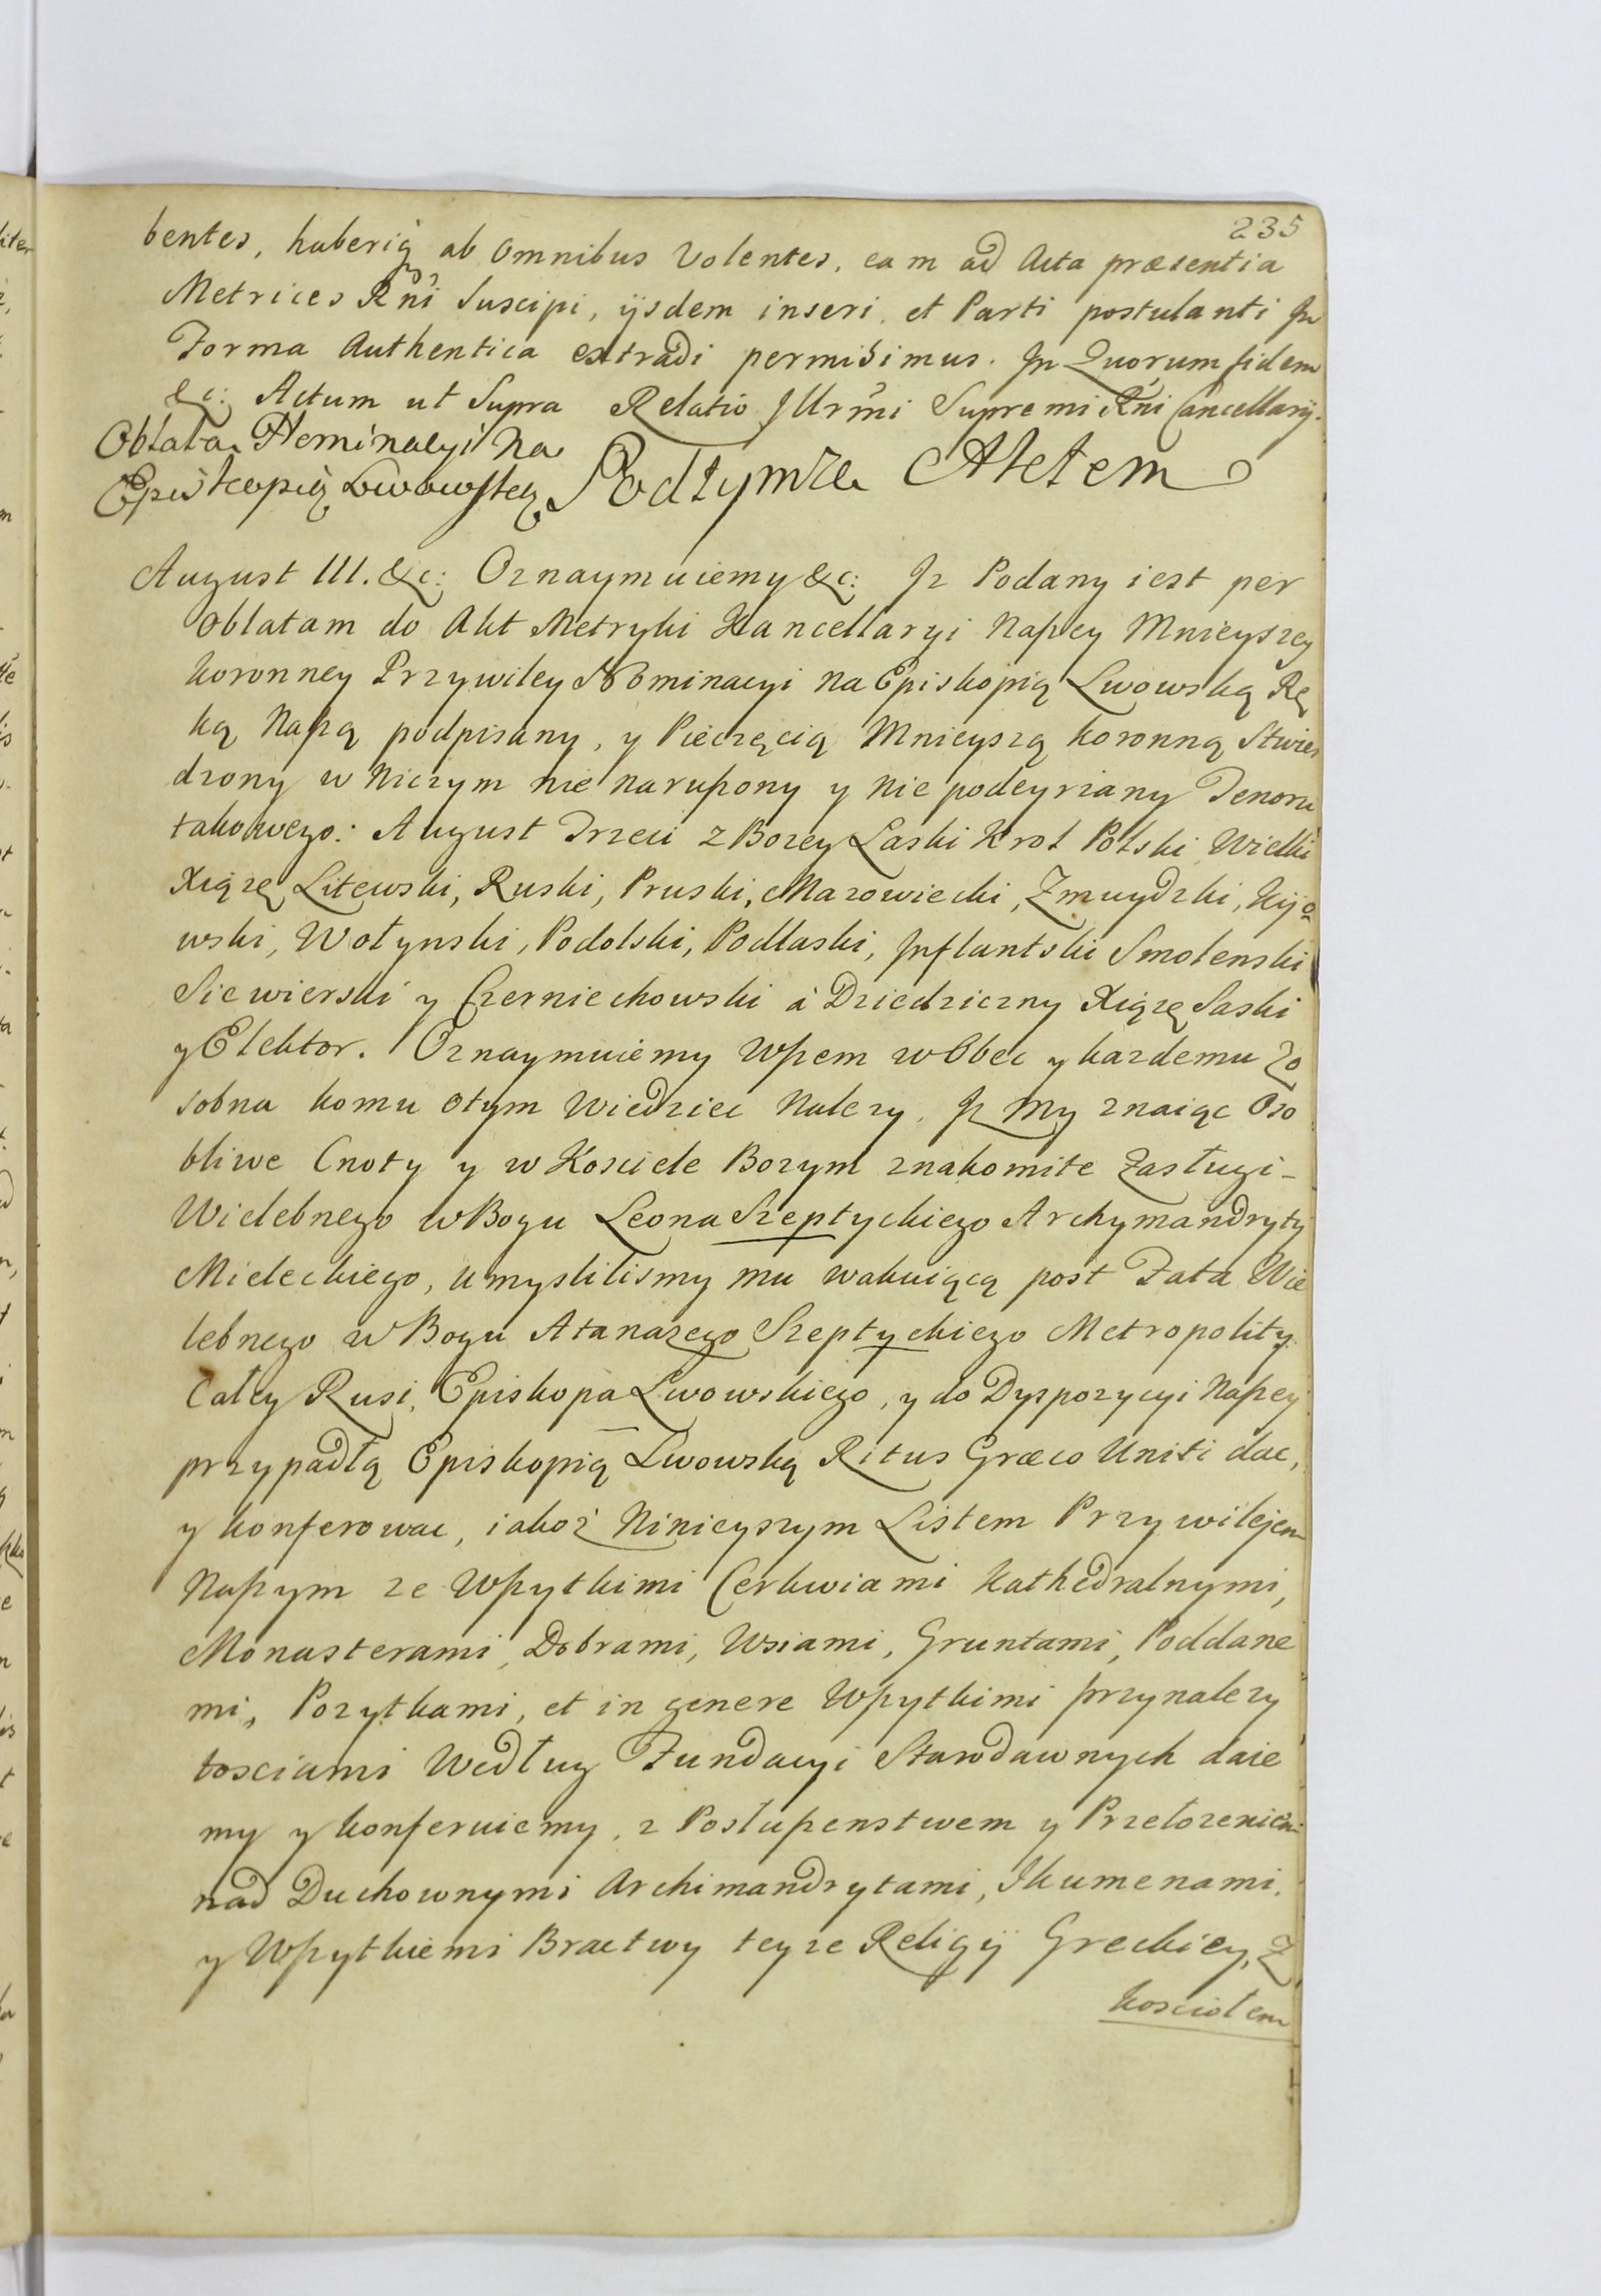 235
bentes, haberiq́ ab omnibus Volentes, eam ad Acta præsentia
Metrices Rni Suscipi, ijsdem inseri, et Parti postulanti In
Forma Authentica extradi permisimus. In Quorum fidem
&c: Actum ut Supra Relatio Illrmi Supremi Rni Cancellarij.
Oblata Neminacyi Na
Episkopię Lwowską Pod tymże Aktem
August III. &c: Oznaymuiemy &c: Iz Podany iest per
Oblatam do Akt Metryki Kancellaryi Naszey Mnieyszey
koronney Przywiley Nominacyi Na Episkopią Lwowską Rę
ką Naszą podpisany, y Pieczęcią Mnieyszą koronną Stwier
dzony w Niczym nie naruszony y Nie podeyrzany Tenoru
takowego: August Trzeci z Bozey Laski Krol Polski Wielki
Xiąze Litewski, Ruski, Pruski, Mazowiecki, Zmuydzki, Kijo
wski, Wołynski, Podolski, Podlaski, Inflantski Smolenski
Siewierski y Czerniechowski á Dziedziczny Xiąze Saski
y Elektor. Oznaymuiemy Wszem w Obec y kazdemu Zo
sobna komu otym Wiedziec Nalezy, Iz My znaiąc Oso
bliwe Cnoty y w Kosciele Bozym znakomite Zasługi-
Wielebnego w Bogu Leona Szeptyckiego Archymandryty
Mieleckiego, umyslilismy mu wakuiącą post Fata Wie
lebnego w Bogu Atanazego Szeptyckiego Metropolity
Całey Rusi, Episkopa Lwowskiego, y do Dyspozycyi Naszey
przypadłą Episkopią Lwowską Ritus Græco Uniti dac,
y konferowac, iakoż Ninieyszym Listem Przywilejem
Naszym ze Wszytkimi Cerkwiami Kathedralnymi,
Monasterami, Dobrami, Wsiami, Gruntami, Poddane
mi, Pozytkami, et in genere Wszytkimi przynalezy
tosciami Według Fundacyi Starodawnych daie
my y konferuiemy, z Posłuszenstwem y Przełozeniem
nad Duchownymi Archimandrytami, Ikumenami,
y Wszytkiemi Bractwy teyze Religij Greckiey, Z
kosciołem